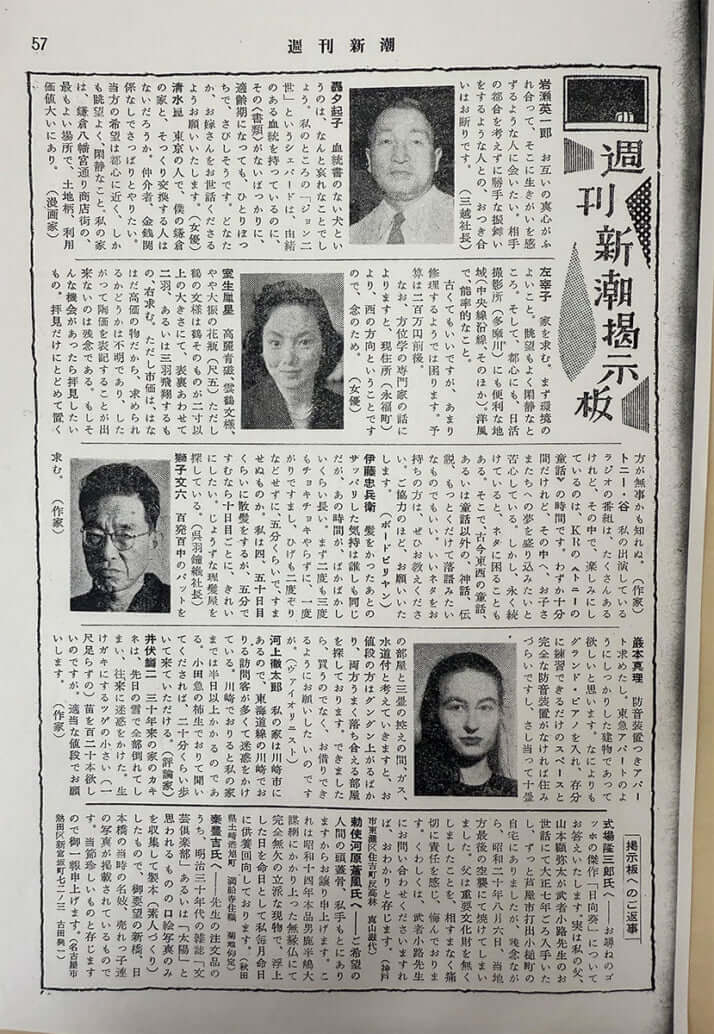 57
週刊新潮
週刊新潮掲示板
岩瀬英一郎　お互いの真心がふ
れ合って、そこに生きがいを感
ずるような人に会いたい。相手
の都合を考えずに勝手な振舞い
をするような人との、おつき合
いはお断りです。　（三越社長）
轟夕起子　血統書のない犬とい
うのは、なんと哀れなことでし
ょう。私のところの「ジョン二
世」というシェパードは、由緒
のある血統を持っているのに、
その〈書類〉がないばっかりに、
適齢期になっても、ひとりぽっ
ちで、さびしそうです。どなた
か、お嫁さんをお世話くださる
ようお願いいたします。（女優）
清水崑　東京の人で、僕の鎌倉
の家と、そっくり交換する人は
ないだろうか。仲介者、金銭関
係なしでさっぱりとやりたい。
当方の希望は都心に近く、しか
も眺望よく、閑静なこと。私の家
は、鎌倉八幡宮通り商店街の、
最もよい場所で、土地柄、利用
価値大いにあり。　（漫画家）
左幸子　家を求む。まず環境の
よいこと。眺望もよく閑静なと
ころ。そして、都心にも、日活
撮影所（多摩川）にも便利な地
域（中央線沿線、そのほか）。洋風
で、能率的なこと。
古くてもいいですが、あまり
修理するようでは困ります。予
算は二百万円前後。
なお、方位学の専門家の話に
よりますと、現住所（永福町）
より、西の方向ということです
ので、念のため。　（女優）
室生犀星　高麗青磁（雲鶴文様、
やや大振の花瓶（尺五）ただし
鶴の文様は鶴そのものが二寸以
上の大きさにて、表裏あわせて
二羽、あるいは三羽飛翔するも
の右求む。ただし市価は、はな
はだ高価の物だから、求められ
るかどうかは不明であり、した
がって陶価を表記することが出
来ないのは残念である。もしそ
んな機会があったら拝見したい
もの。拝見だけにとどめて置く
方が無事かも知れぬ。（作家）
トニー・谷　私の出演している
ラジオの番組は、たくさんある
けれど、その中で、楽しみにし
ているのは、KRの〈トニーの
童話〉の時間です。わずか十分
間だけれど、その中へ、お子さ
またちへの夢を盛り込みたいと
苦心している。しかし、永く続
けていると、ネタに困ることも
ある。そこで、古今東西の童話、
あるいは童話以外の、神話、伝
説、もっとくだけて落語みたい
なものでもいい、いいネタをお
持ちの方は、ぜひお教えくださ
い。ご協力のほど、お願いいた
します。　（ボードビリヤン）
伊藤忠兵衛　髪をかったあとの
サッパリした気持は誰しも同じ
だが、あの時間が、ばかばかし
いくらい長い。まず二度も三度
もチョキチョキやらずに、一度
がりですまし、ひげも二度ぞり
などせずに、五分くらいで、すま
せぬものか。私は四、五十日目
くらいに散髪をするが、五分で
すむなら十日目ごとに、きれい
にしたい。じょうずな理髪屋を
探している。（呉羽紡織社長）
獅子文六　百発百中のパットを
求む。　（作家）
巌本真理　防音装置つきアパー
ト求めたし。東急アパートのよ
うにしっかりした建物であって
欲しいと思います。なによりも
グランド・ピアノを入れ、存分
に練習できるだけのスペースと
完全な防音装置がなければ住み
づらいですし、さし当って十畳
の部屋と三畳の控えの間、ガス、
水道付と考えていきますと、お
値段の方はグングン上がるばか
り、両方うまく落ち合える部屋
を探しております。できました
ら、買うのでなく、お借りでき
るようにお願いしたいのです
が。（ヴァイオリニスト）
河上徹太郎　私の家は川崎市に
あるので、東海道線の川崎でお
りる訪問客が多くて迷惑をかけ
ている。川崎でおりると私の家
までは半日以上かかるのであ
る。小田急の柿生でおりて聞い
てくだされば、二十分くらい歩
いて来ていただける。（評論家）
井伏鱒二　三十年来の家のカキ
ネは、先日の雪で全部倒れてし
まい、往来に迷惑をかけた。生
けガキにするツゲの小さい（一
尺足らずの）苗を百二十本欲し
いのですが。適当な値段でお願
いします。　（作家）
掲示板へのご返事
式場隆三郎氏へ――お尋ねのゴ
ッホの傑作「日向葵」について
お答えいたします。実は私の父、
山本顧弥太が武者小路先生のお
世話にて大正七年ごろ入手いた
し、ずっと芦屋市打出小槌町の
自宅にありましたが、残念なが
ら、昭和二十年八月六日、当地
方最後の空襲にて焼けてしまい
ました。父は重要文化財を無く
しましたことを、相すまなく痛
切に責任を感じ、悔んでおりま
す。くわしくは、武者小路先生
にお問い合わせくださいますれ
ば、おわかりと存じます。（神戸
市東灘区住吉町反高林　真山淑代）
勅使河原蒼風氏へ――ご希望の
人間の頭蓋骨、私手もとにあり
ますからお譲り申上げます。こ
れは昭和十四年本品男鹿半嶋大
謀網にかかり上った無縁仏にて
完全無欠の立派な現物で、浮上
した日を命日として私毎月命日
に供養回向しております。（秋田
県土崎港旭町　満船寺住職　菊地仰定）
楽豊吉氏へ――先生の注文品の
うち、明治三十年代の雑誌「文
芸倶楽部」あるいは「太陽」と
思われるものの口絵写真のみ
を収集して製本（素人づくり）
したもので、御要望の新橋、日
本橋の当時の名妓、売れっ子連
の写真が掲載されているもので
す。当節珍しいものと存じます
ので御一報申上げます。（名古屋市
熱田区新宮坂町七二ノ三　古田興一）